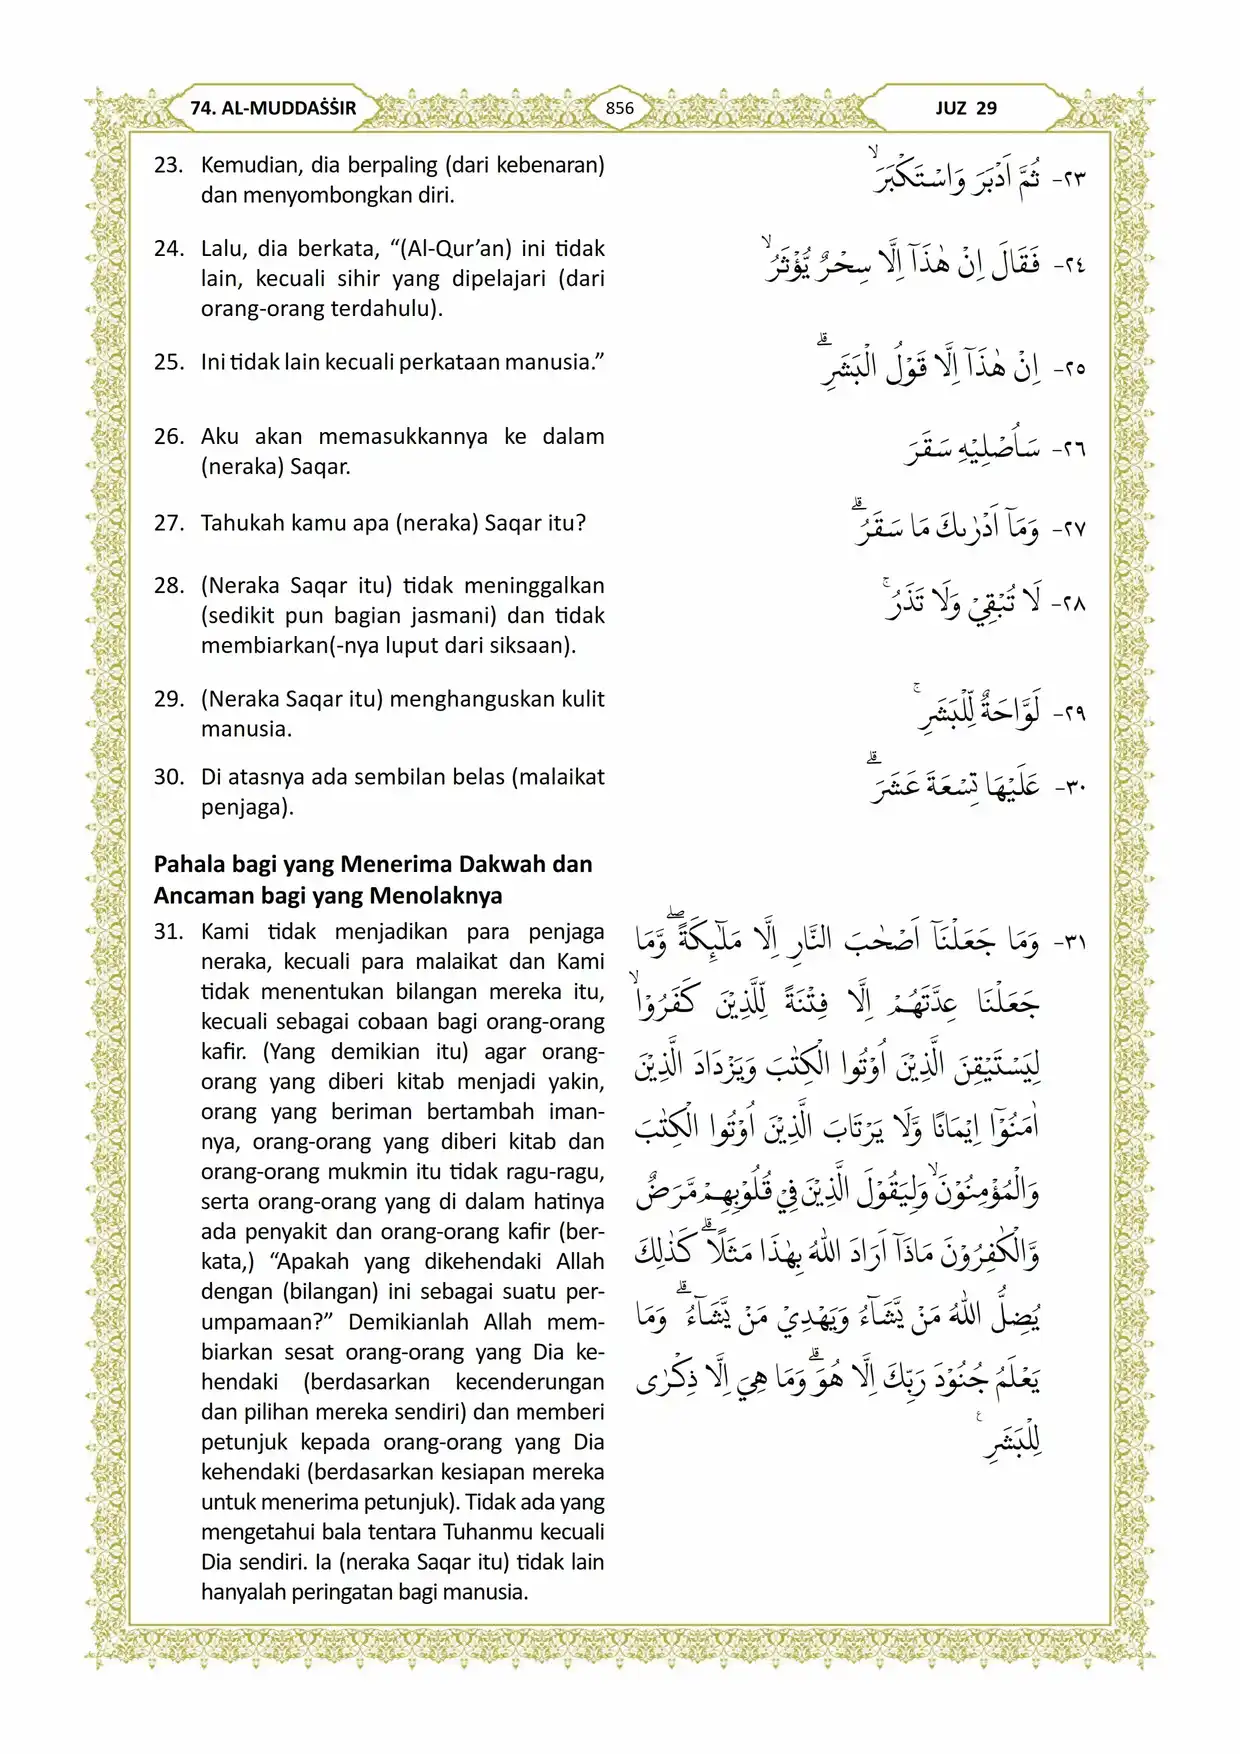 74. AL-MUDDAṠṠIR
856
JUZ 29
23. Kemudian, dia berpaling (dari kebenaran)
dan menyombongkan diri.
٢٣- ثُمَّ اَدْبَرَ وَاسْتَكْبَرَۙ
24. Lalu, dia berkata, “(Al-Qur’an) ini tidak
lain, kecuali sihir yang dipelajari (dari
orang-orang terdahulu).
٢٤- فَقَالَ اِنْ هٰذَآ اِلَّا سِحْرٌ يُّؤْثَرُۙ
25. Ini tidak lain kecuali perkataan manusia.”
٢٥- اِنْ هٰذَآ اِلَّا قَوْلُ الْبَشَرِۗ
26. Aku akan memasukkannya ke dalam
(neraka) Saqar.
٢٦- سَاُصْلِيْهِ سَقَرَ
27. Tahukah kamu apa (neraka) Saqar itu?
٢٧- وَمَآ اَدْرٰىكَ مَا سَقَرُۗ
28. (Neraka Saqar itu) tidak meninggalkan
(sedikit pun bagian jasmani) dan tidak
membiarkan(-nya luput dari siksaan).
٢٨- لَا تُبْقِيْ وَلَا تَذَرُۚ
29. (Neraka Saqar itu) menghanguskan kulit
manusia.
٢٩- لَوَّاحَةٌ لِّلْبَشَرِۚ
30. Di atasnya ada sembilan belas (malaikat
penjaga).
٣٠- عَلَيْهَا تِسْعَةَ عَشَرَۗ
Pahala bagi yang Menerima Dakwah dan
Ancaman bagi yang Menolaknya
31. Kami tidak menjadikan para penjaga
neraka, kecuali para malaikat dan Kami
tidak menentukan bilangan mereka itu,
kecuali sebagai cobaan bagi orang-orang
kafir. (Yang demikian itu) agar orang-
orang yang diberi kitab menjadi yakin,
orang yang beriman bertambah iman-
nya, orang-orang yang diberi kitab dan
orang-orang mukmin itu tidak ragu-ragu,
serta orang-orang yang di dalam hatinya
ada penyakit dan orang-orang kafir (ber-
kata,) “Apakah yang dikehendaki Allah
dengan (bilangan) ini sebagai suatu per-
umpamaan?” Demikianlah Allah mem-
biarkan sesat orang-orang yang Dia ke-
hendaki (berdasarkan kecenderungan
dan pilihan mereka sendiri) dan memberi
petunjuk kepada orang-orang yang Dia
kehendaki (berdasarkan kesiapan mereka
untuk menerima petunjuk). Tidak ada yang
mengetahui bala tentara Tuhanmu kecuali
Dia sendiri. Ia (neraka Saqar itu) tidak lain
hanyalah peringatan bagi manusia.
٣١- وَمَا جَعَلْنَآ اَصْحٰبَ النَّارِ اِلَّا مَلٰۤىِٕكَةًۖ وَّمَا
جَعَلْنَا عِدَّتَهُمْ اِلَّا فِتْنَةً لِّلَّذِيْنَ كَفَرُوْاۙ
لِيَسْتَيْقِنَ الَّذِيْنَ اُوْتُوا الْكِتٰبَ وَيَزْدَادَ الَّذِيْنَ
اٰمَنُوْٓا اِيْمَانًا وَّلَا يَرْتَابَ الَّذِيْنَ اُوْتُوا الْكِتٰبَ
وَالْمُؤْمِنُوْنَۙ وَلِيَقُوْلَ الَّذِيْنَ فِيْ قُلُوْبِهِمْ مَّرَضٌ
وَّالْكٰفِرُوْنَ مَاذَآ اَرَادَ اللّٰهُ بِهٰذَا مَثَلًاۗ كَذٰلِكَ
يُضِلُّ اللّٰهُ مَنْ يَّشَاۤءُ وَيَهْدِيْ مَنْ يَّشَاۤءُۗ وَمَا
يَعْلَمُ جُنُوْدَ رَبِّكَ اِلَّا هُوَۗ وَمَا هِيَ اِلَّا ذِكْرٰى
لِلْبَشَرِ ࣖ